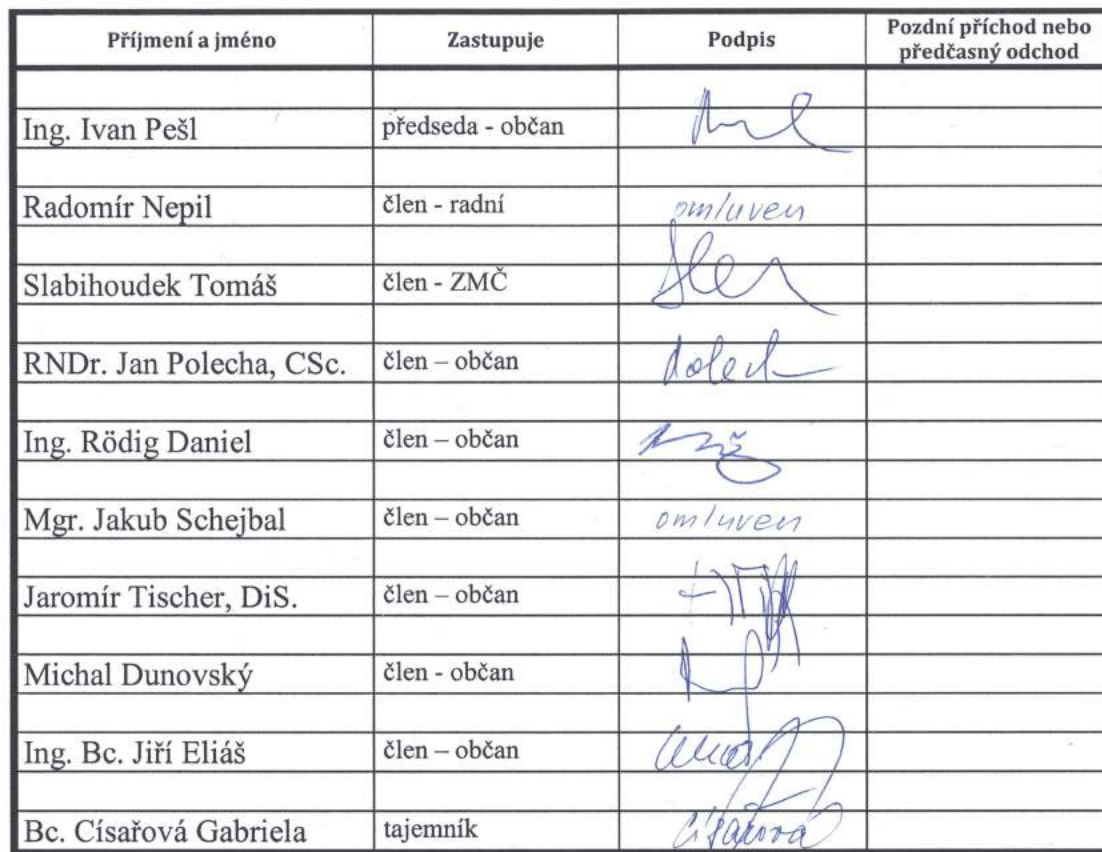 Příjmení a jméno Zastupuje Podpis Pozdní příchod nebo předčasný odchod
Ing. Ivan Pešl předseda - občan
Radomír Nepil člen - radní omluven
Slabihoudek Tomáš člen - ZMČ
RNDr. Jan Polecha, CSc. člen – občan
Ing. Rödig Daniel člen – občan
Mgr. Jakub Schejbal člen – občan omluven
Jaromír Tischer, DiS. člen – občan
Michal Dunovský člen - občan
Ing. Bc. Jiří Eliáš člen – občan
Bc. Císařová Gabriela tajemník Císařová